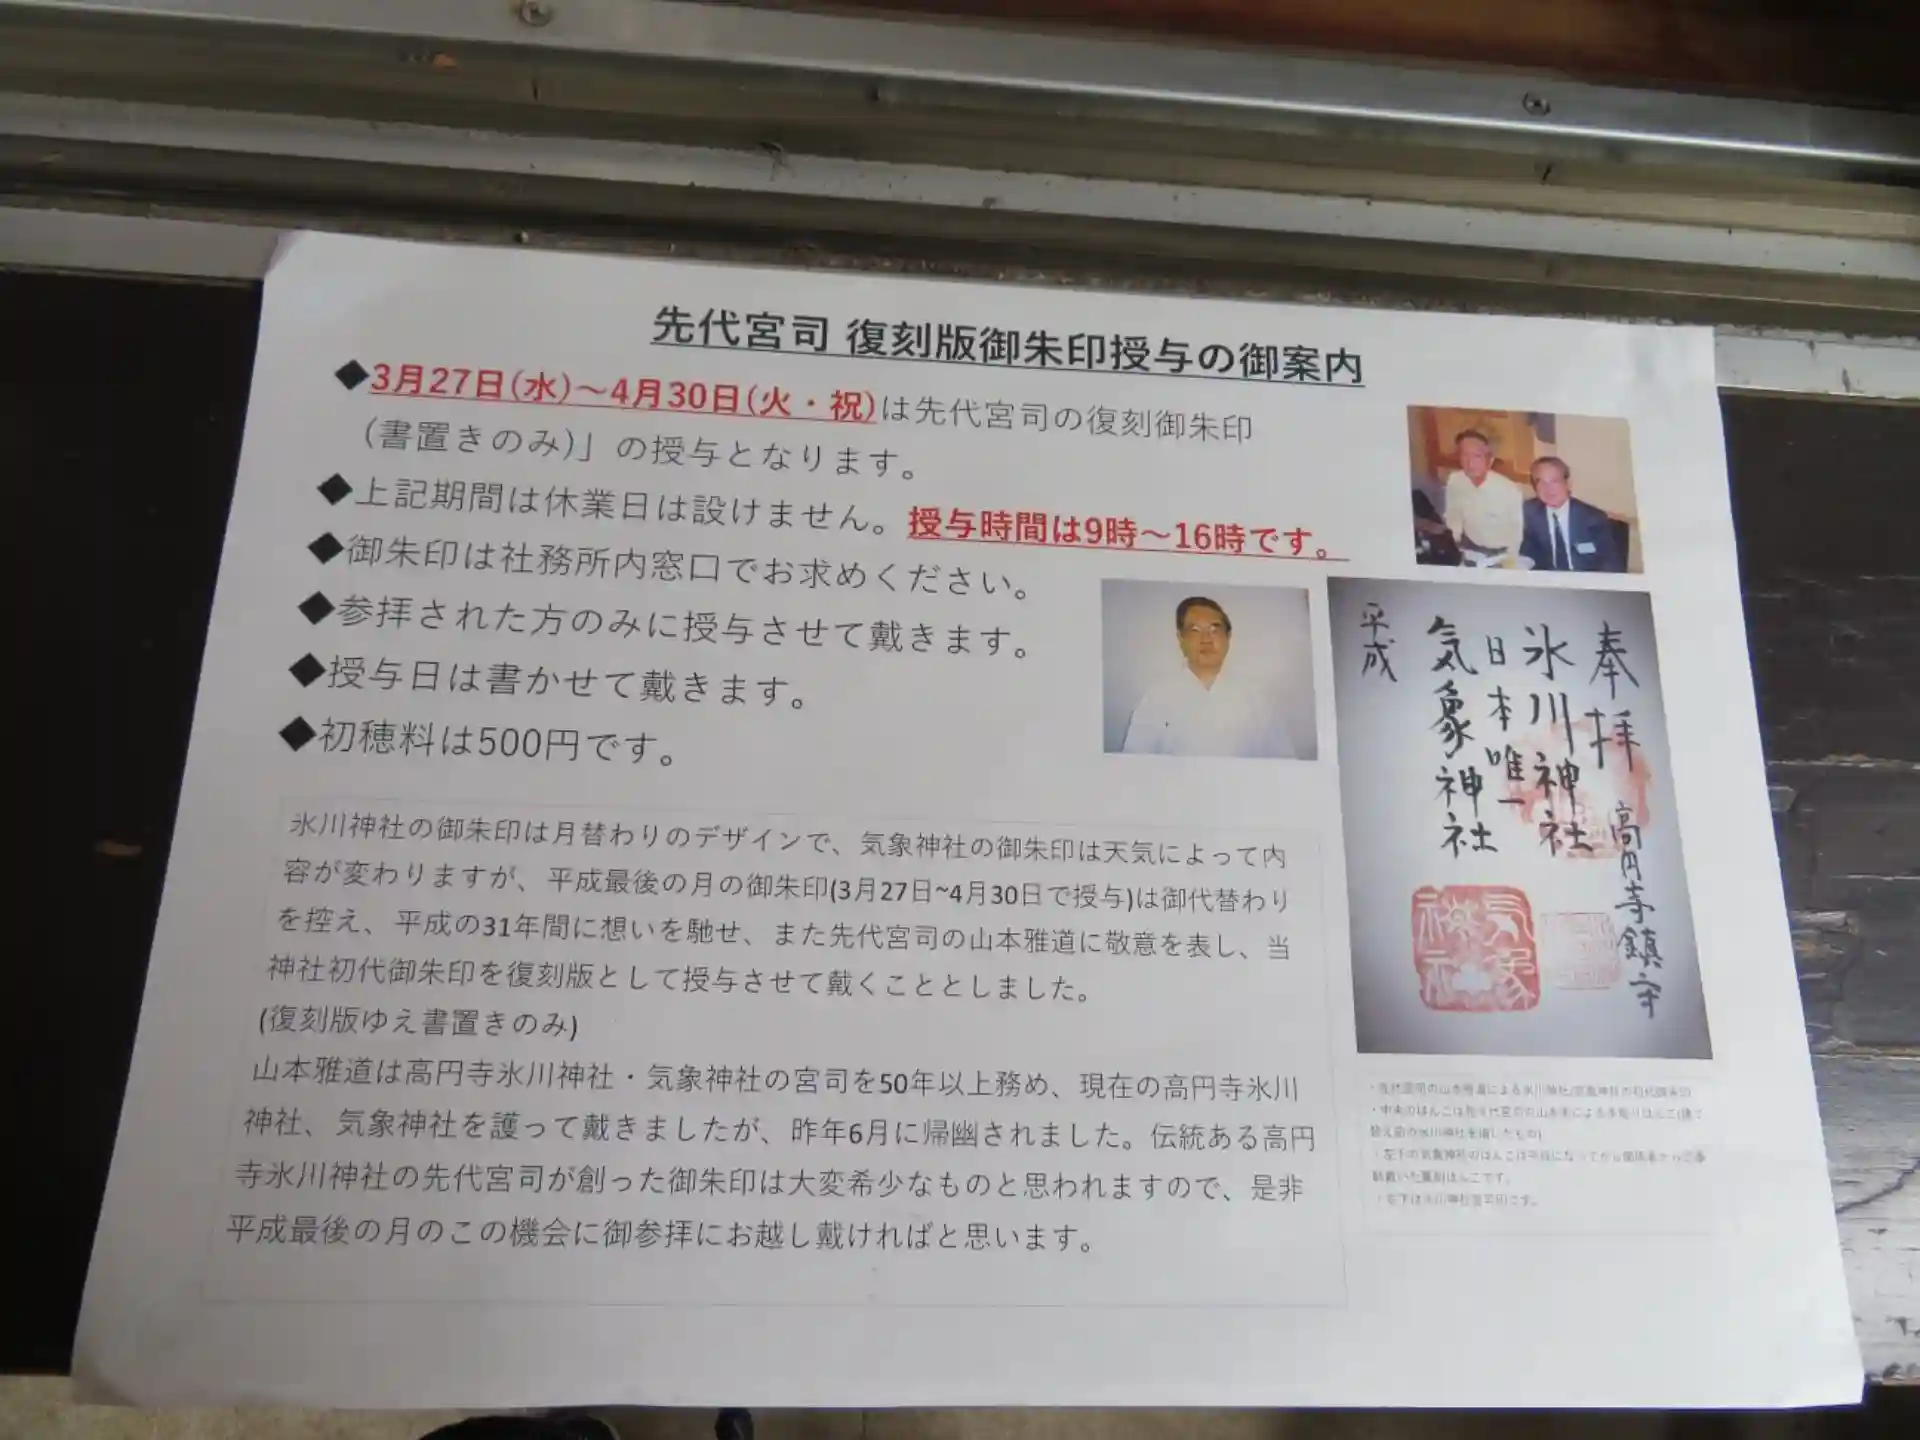 先代宮司 復刻版御朱印授与の御案内
◆3月27日(水)～4月30日(火・祝)は先代宮司の復刻御朱印
(書置きのみ)」の授与となります。
◆上記期間は休業日は設けません。授与時間は9時～16時です。
◆御朱印は社務所内窓口でお求めください。
◆参拝された方のみに授与させて戴きます。
◆授与日は書かせて戴きます。
◆初穂料は500円です。
氷川神社の御朱印は月替わりのデザインで、気象神社の御朱印は天気によって内
容が変わりますが、平成最後の月の御朱印(3月27日~4月30日で授与)は御代替わり
を控え、平成の31年間に想いを馳せ、また先代宮司の山本雅道に敬意を表し、当
神社初代御朱印を復刻版として授与させて戴くこととしました。
(復刻版ゆえ書置きのみ)
山本雅道は高円寺氷川神社・気象神社の宮司を50年以上務め、現在の高円寺氷川
神社、気象神社を護って戴きましたが、昨年6月に帰幽されました。伝統ある高円
寺氷川神社の先代宮司が創った御朱印は大変希少なものと思われますので、是非
平成最後の月のこの機会に御参拝にお越し戴ければと思います。
奉拝
高円寺鎮守
氷川神社
日本唯一
気象神社
平成
気象
神社